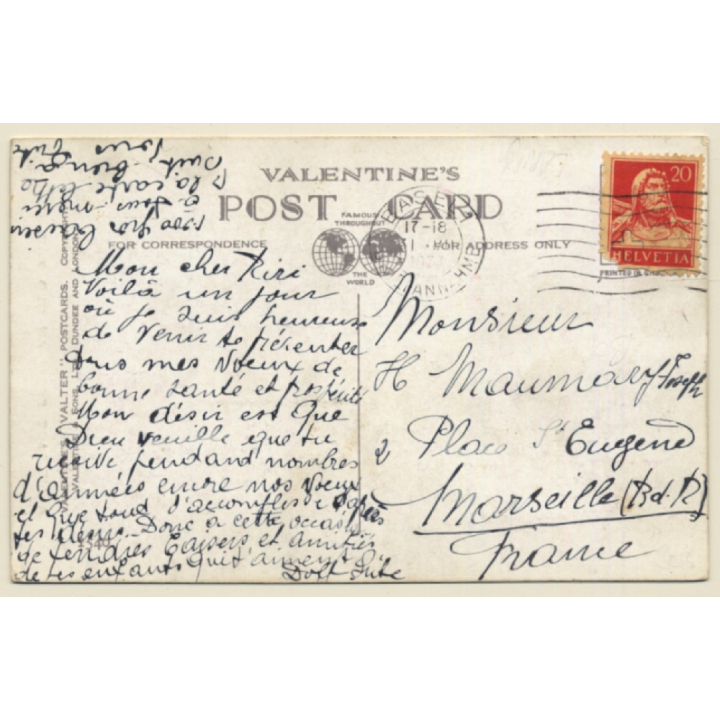 VALENTINE'S
POST CARD
FAMOUS THROUGHOUT
THE WORLD
FOR CORRESPONDENCE
FOR ADDRESS ONLY
BASEL
17-18
20
HELVETIA
PRINTED IN
"VALTER" POSTCARDS. COPYRIGHT
VALENTINE & SONS, LTD. DUNDEE AND LONDON
Mon cher Riri
Voilà un jour
où je suis heureuse
de venir te présenter
tous mes Voeux de
bonne santé et prospérité
Mon désir est que
Dieu veuille que tu
reçoive pendand nombres
d'années encore nos Voeux
et que tout s'accomplisse d'après
tes désirs. Donc à cette occasion
de tendres Baisers et amitiés
de tes enfants qui t'aiment
Monsieur
H Maumary Joseph
2 Place St Eugène
Marseille (B.d.R)
France